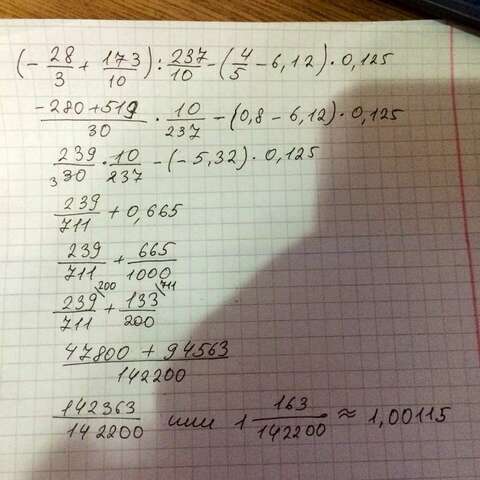 (- 28/3 + 173/10) : 237/10 - (4/5 - 6,12) · 0,125
-280+519/30 · 10/237 - (0,8 - 6,12) · 0,125
239/3 30 · 10/237 - (-5,32) · 0,125
239/711 + 0,665
239/711 + 665/1000
239\200/711 + 133\711/200
47800 + 94563/142200
142363/142200 или 1 163/142200 ≈ 1,00115